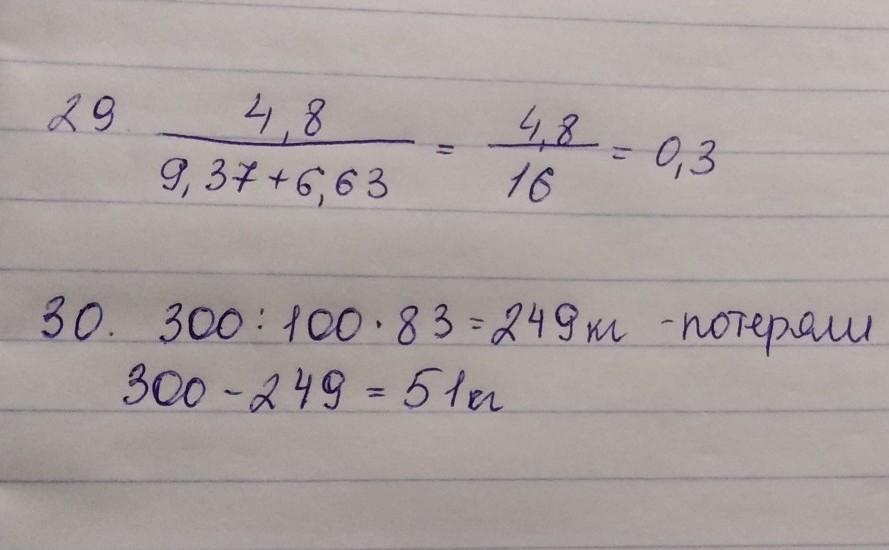 29 4,8 / 9,37+6,63 = 4,8 / 16 = 0,3
30. 300:100·83=249кг -потеряли
300-249=51кг